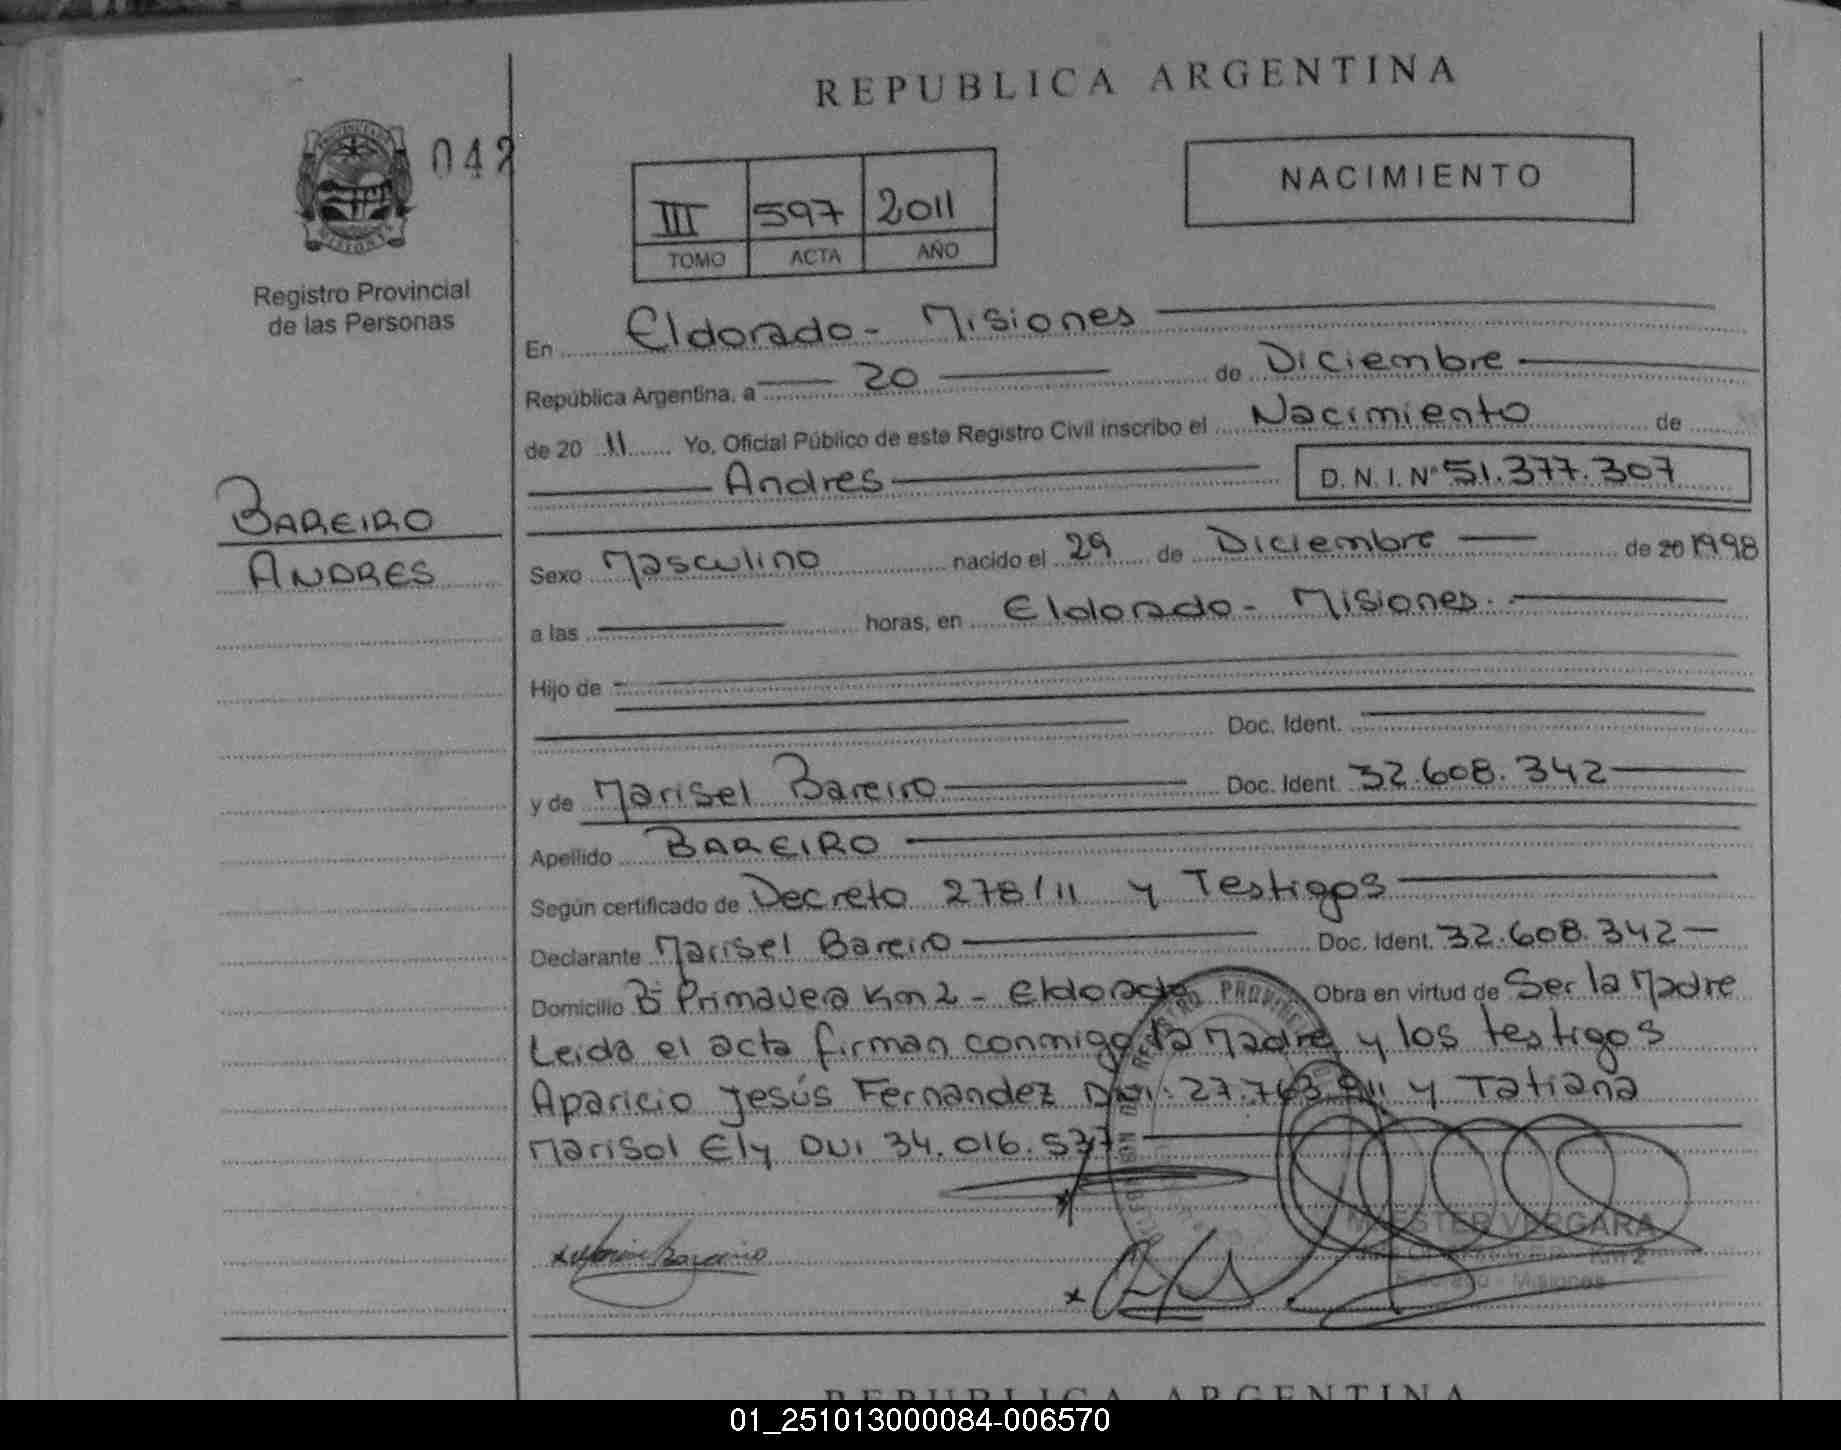 REPUBLICA ARGENTINA
042
NACIMIENTO
III 597 2011
TOMO ACTA AÑO
Registro Provincial
de las Personas
En Eldorado - Misiones
República Argentina, a 20 de Diciembre
de 20 11 Yo, Oficial Público de este Registro Civil inscribo el Nacimiento de
Andres D. N. I. Nº 51.377.307
BAREIRO
ANDRES
Sexo Masculino nacido el 29 de Diciembre de 20 1998
a las horas, en Eldorado - Misiones.
Hijo de
Doc. Ident.
y de Marisel Bareiro Doc. Ident. 32.608.342
Apellido BAREIRO
Según certificado de Decreto 278/11 y Testigos
Declarante Marisel Bareiro Doc. Ident. 32.608.342
Domicilio Bº Primavera Km 2 - Eldorado Obra en virtud de Ser la Madre
Leida el acta firman conmigo la Madre y los testigos
Aparicio Jesús Fernandez DNI: 27.763. y Tatiana
Marisol Ely DNI 34.016.537
VERGARA
Km 2
Eldorado - Misiones
REPUBLICA ARGENTINA
01_251013000084-006570